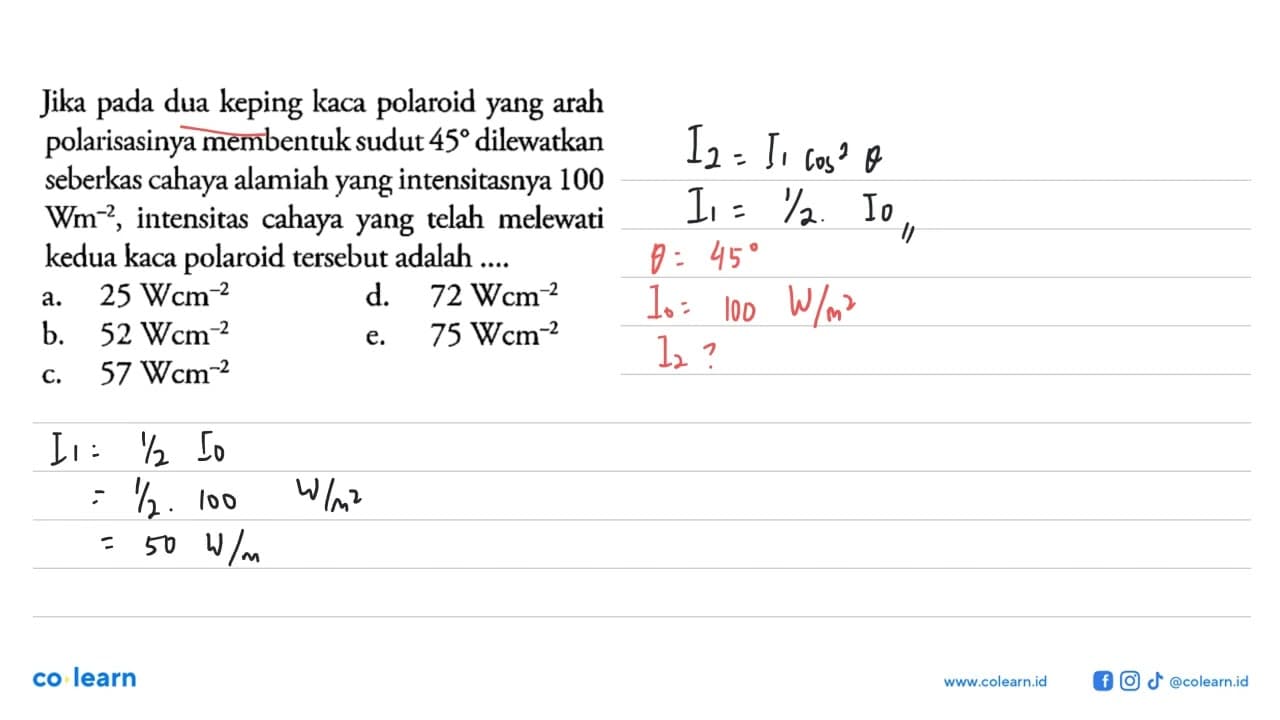 Jika pada dua keping kaca polaroid yang arah
polarisasinya membentuk sudut 45° dilewatkan
seberkas cahaya alamiah yang intensitasnya 100
Wm⁻², intensitas cahaya yang telah melewati
kedua kaca polaroid tersebut adalah ....
a. 25 Wcm⁻² d. 72 Wcm⁻²
b. 52 Wcm⁻² e. 75 Wcm⁻²
c. 57 Wcm⁻²
I₂ = I₁ cos² θ
I₁ = 1/2 . I₀ //
θ = 45°
I₀ = 100 W/m²
I₂ ?
I₁ = 1/2 I₀
= 1/2 . 100 W/m²
= 50 W/m
co learn
www.colearn.id
@colearn.id